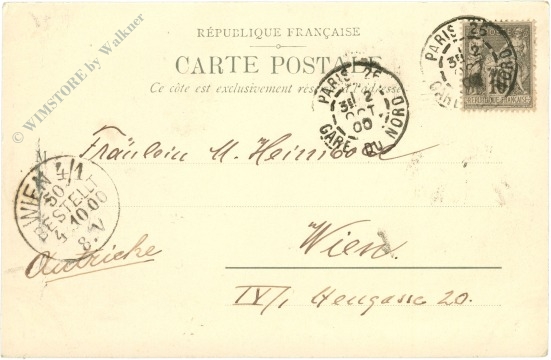 © WIMSTORE by Walkner
RÉPUBLIQUE FRANÇAISE
CARTE POSTALE
Ce côte est exclusivement réservé à l'adresse
PARIS 25
12
OCT
00
GARE DU NORD
PARIS 25
GARE DU NORD
REPUBLIQUE FRANÇAISE
Fräulein M.
WIEN 4/1
BESTELLT
4 10 00
8. V
Autriche
Wien
IV/1 Heugasse 20.